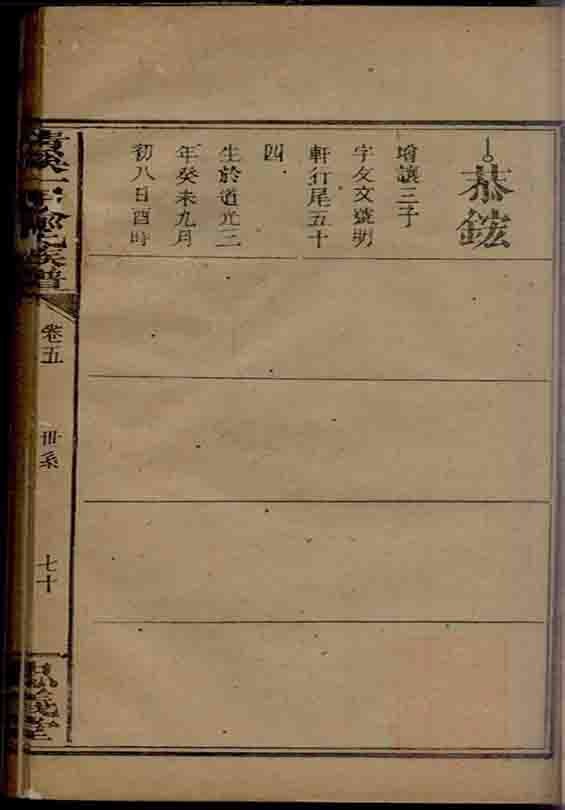 恭鋐
增讓三子
字文號明
軒行尾五十
四
生於道光三
年癸未九月
初八日酉時
族譜
卷五
世系
七十